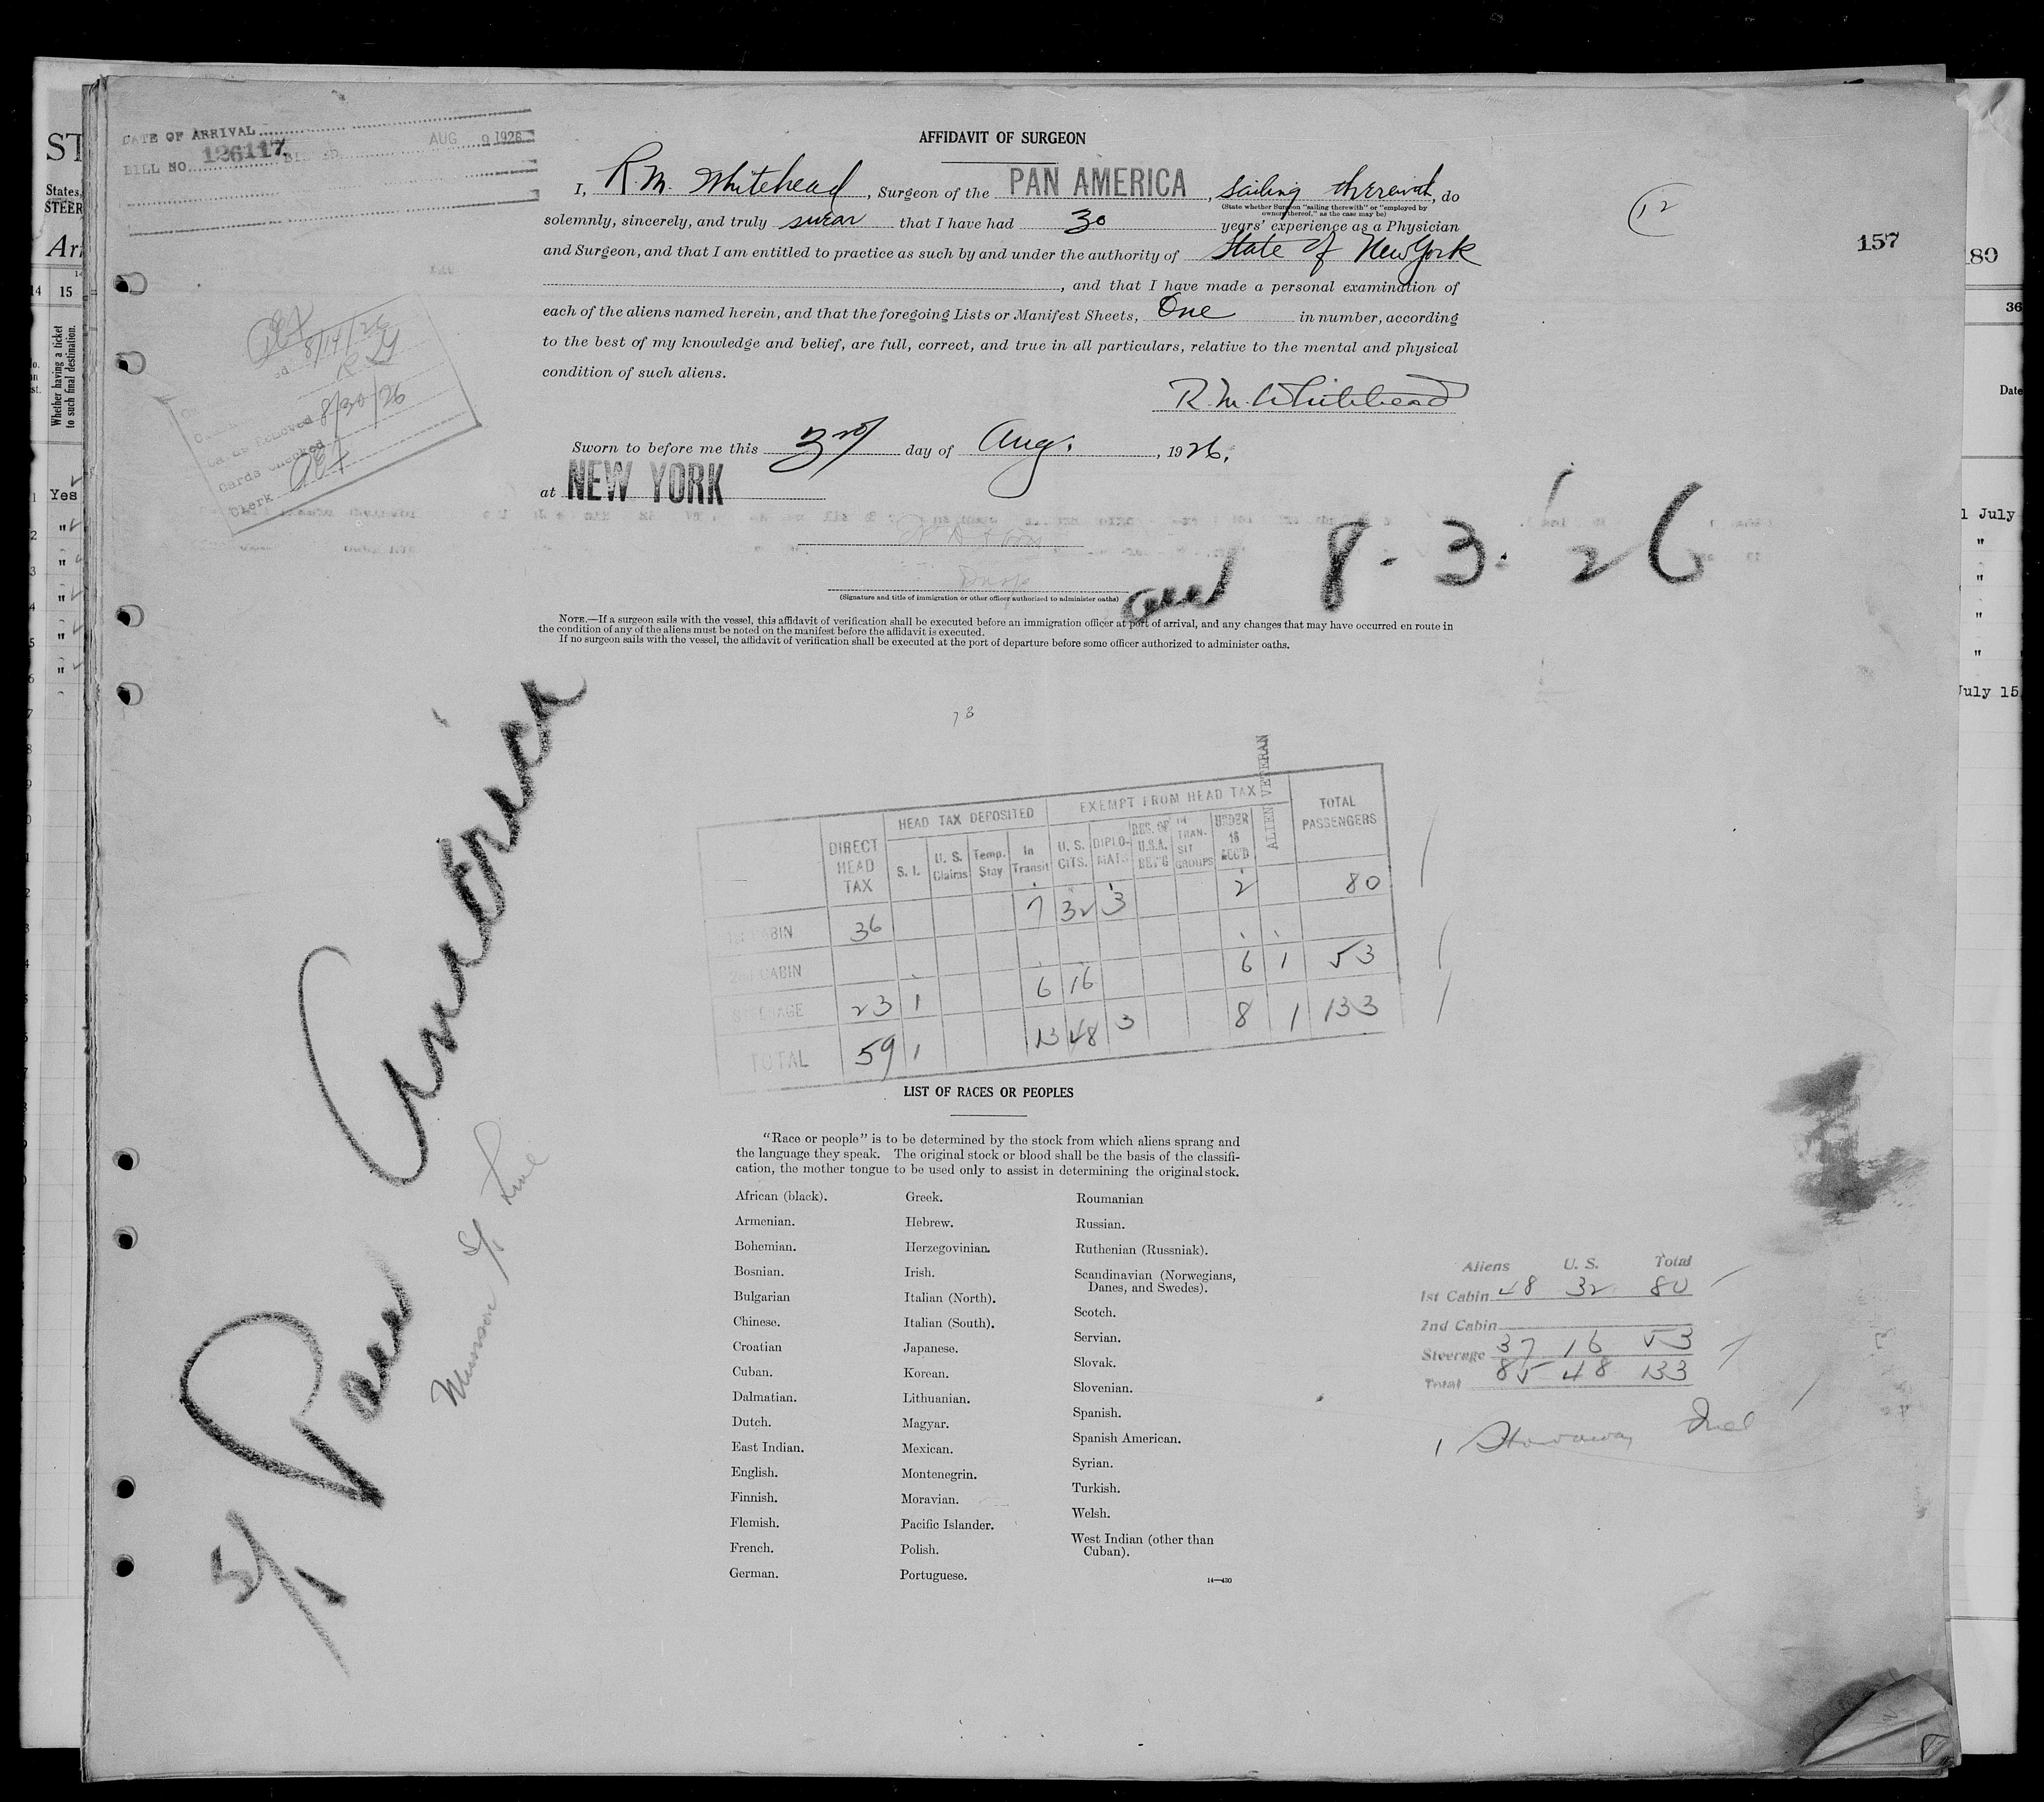 DATE OF ARRIVAL
AUG 9 1926
BILL NO. 126117 BILLED
AFFIDAVIT OF SURGEON
I, R. M. Whitehead, Surgeon of the PAN AMERICA, sailing therewith, do
(State whether Surgeon "sailing therewith" or "employed by
owners thereof," as the case may be)
solemnly, sincerely, and truly swear that I have had 30 years' experience as a Physician
and Surgeon, and that I am entitled to practice as such by and under the authority of State of New York
, and that I have made a personal examination of
each of the aliens named herein, and that the foregoing Lists or Manifest Sheets, One in number, according
to the best of my knowledge and belief, are full, correct, and true in all particulars, relative to the mental and physical
condition of such aliens.
R. M. Whitehead
Sworn to before me this 3rd day of Aug., 1926.
at NEW YORK
(Signature and title of immigration or other officer authorized to administer oaths)
8-3-26
NOTE.—If a surgeon sails with the vessel, this affidavit of verification shall be executed before an immigration officer at port of arrival, and any changes that may have occurred en route in
the condition of any of the aliens must be noted on the manifest before the affidavit is executed.
If no surgeon sails with the vessel, the affidavit of verification shall be executed at the port of departure before some officer authorized to administer oaths.
12
157
180
36
Date
ST
States,
STEER
Arr
14 15
Whether having a ticket
to such final destination.
Yes
"
"
"
"
"
l July
"
"
"
"
July 15
8/14/26
removed 8/30/26
Cards Checked
Clerk
S/S Pan America
Munson S/S Line
73
DIRECT HEAD TAX
HEAD TAX DEPOSITED
EXEMPT FROM HEAD TAX
ALIEN VETERAN
TOTAL PASSENGERS
S. I. U. S. Claims Temp. Stay In Transit U. S. CITS. DIPLO-MATS RES. OF U.S.A. RET'G IN TRAN-SIT GROUPS UNDER 16 ACC'D
1st CABIN 36 7 32 3 2 80
2nd CABIN
STEERAGE 23 1 6 16 6 1 53
TOTAL 59 1 13 48 3 8 1 133
LIST OF RACES OR PEOPLES
"Race or people" is to be determined by the stock from which aliens sprang and
the language they speak. The original stock or blood shall be the basis of the classifi-
cation, the mother tongue to be used only to assist in determining the original stock.
African (black).
Armenian.
Bohemian.
Bosnian.
Bulgarian
Chinese.
Croatian
Cuban.
Dalmatian.
Dutch.
East Indian.
English.
Finnish.
Flemish.
French.
German.
Greek.
Hebrew.
Herzegovinian.
Irish.
Italian (North).
Italian (South).
Japanese.
Korean.
Lithuanian.
Magyar.
Mexican.
Montenegrin.
Moravian.
Pacific Islander.
Polish.
Portuguese.
Roumanian
Russian.
Ruthenian (Russniak).
Scandinavian (Norwegians,
Danes, and Swedes).
Scotch.
Servian.
Slovak.
Slovenian.
Spanish.
Spanish American.
Syrian.
Turkish.
Welsh.
West Indian (other than
Cuban).
14—430
Aliens U. S. Total
1st Cabin 48 32 80
2nd Cabin
Steerage 37 16 53
Total 85 48 133
1 Stowaway